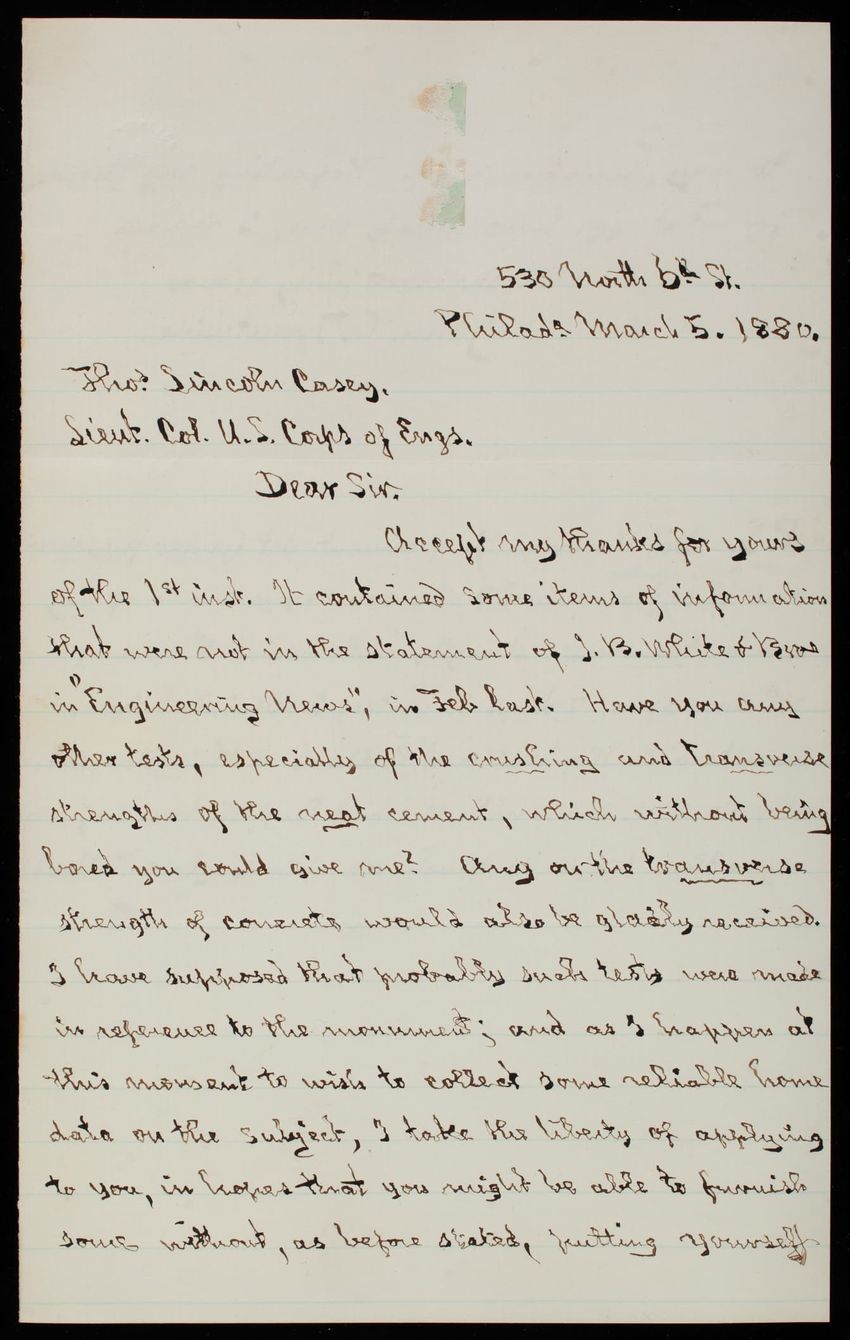 530 North 6th St.
Philada March 5. 1880.
Thos Lincoln Casey.
Lieut. Col. U.S. Corps of Engs.
Dear Sir.
Accept my thanks for yours
of the 1st inst. It contained some items of information
that were not in the statement of J. B. White & Bros
in "Engineering News", in Feb last. Have you any
other tests, especially of the crushing and transverse
strengths of the neat cement, which without being
bored you could give me? Any on the transverse
strength of concrete would also be gladly received.
I have supposed that probably such tests were made
in reference to the monument; and as I happen at
this moment to wish to collect some reliable home
data on the subject, I take the liberty of applying
to you, in hopes that you might be able to furnish
some without, as before stated, putting yourself